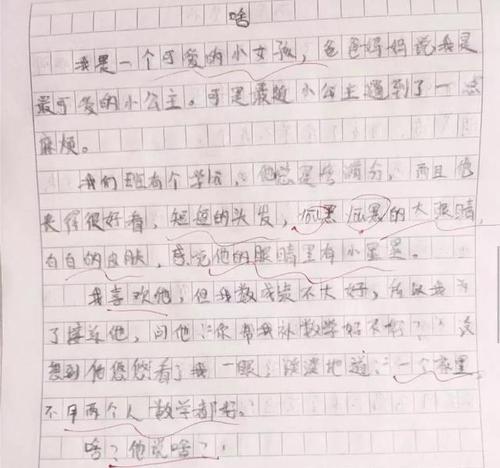 啥
我是一个可爱的小女孩，爸爸妈妈说我是
最可爱的小公主。可是最近小公主遇到了一点
麻烦。
我们班有个学沅，他总是考满分，而且他
长得很好看，短短的头发，黑黑的大眼睛，
白白的皮肤，感觉他的眼睛里有小星星。
我喜欢他，但我数学成绩不大好，所以我为
了接近他，问他：“你帮我补数学好不好？”没
想到他悠悠看了我一眼，淡淡地道：“一个家里
不用两个人数学都好。
啥？他说啥？